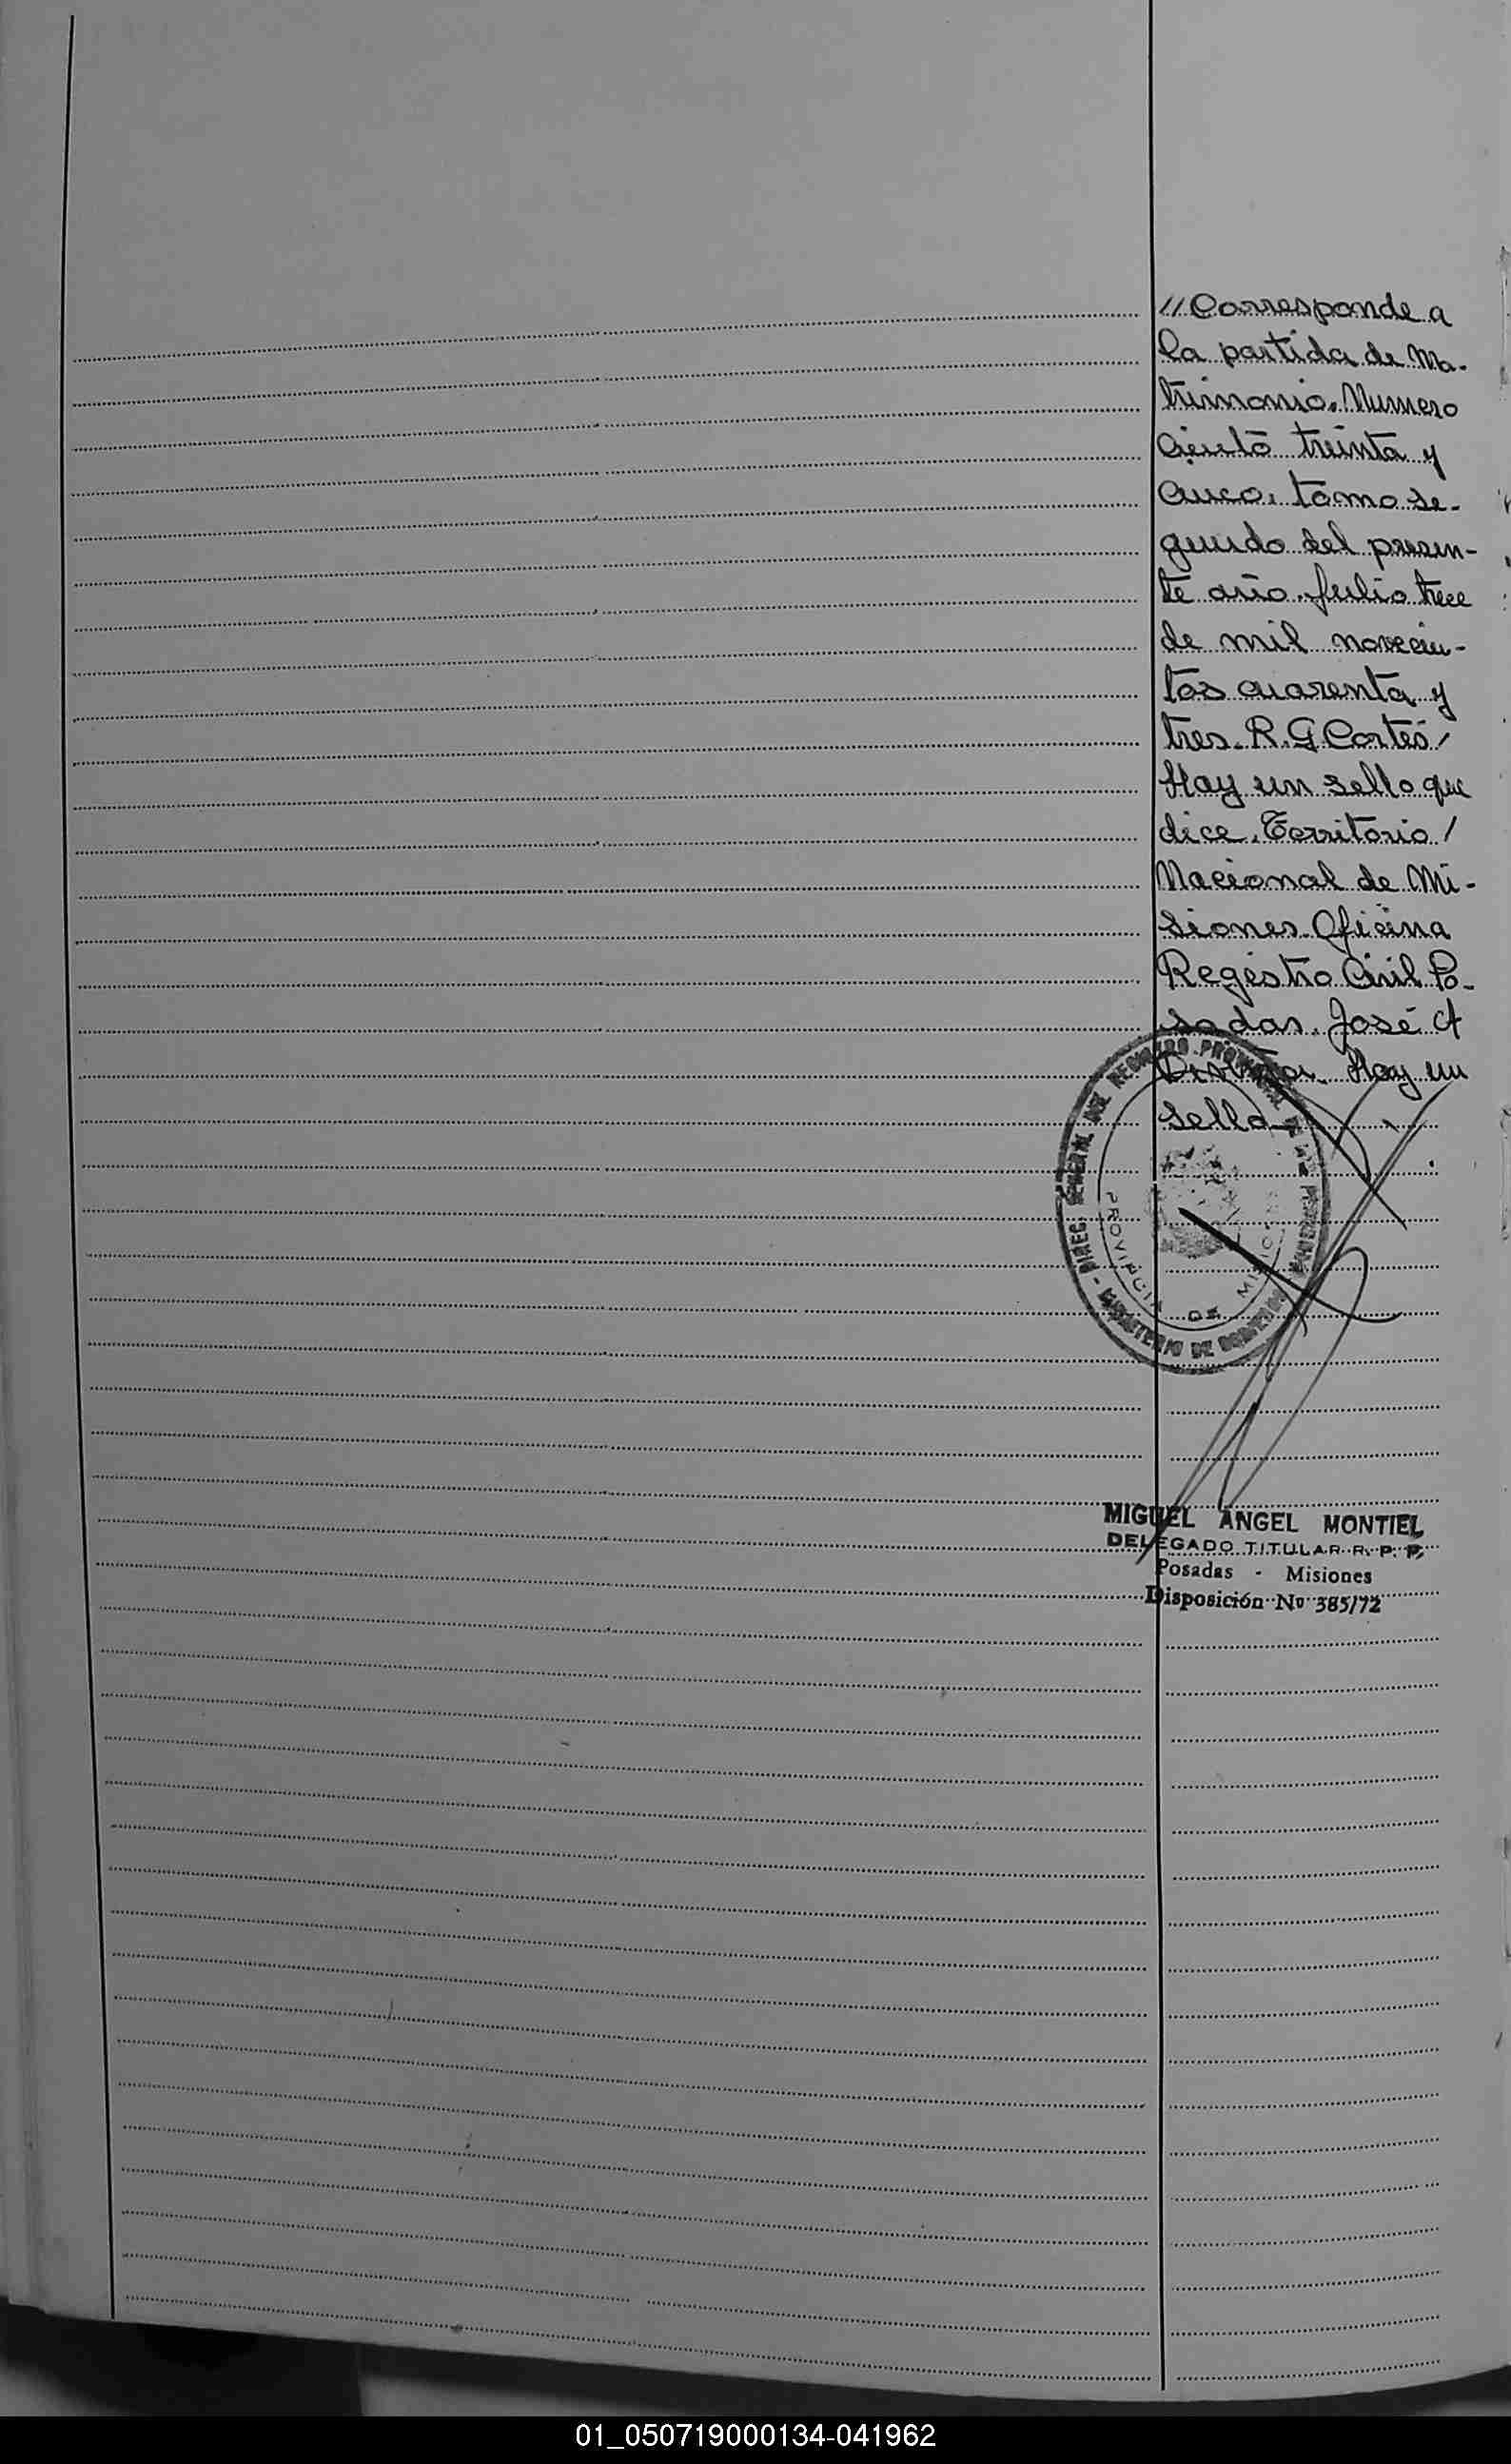 // Corresponde a
la partida de Ma-
trimonio. Numero
Ciento treinta y
cinco, tomo se-
gundo del presen-
te año. Julio trece
de mil novecien-
tos cuarenta y
tres. R. G. Cortés /
Hay un sello que
dice. Territorio /
Nacional de Mi-
siones. Oficina
Registro Civil Po-
sadas. José A
Hay un
sello
PROVINCIA DE
MIGUEL ANGEL MONTIEL
DELEGADO TITULAR R. P. P.
Posadas - Misiones
Disposición Nº 385/72
01_050719000134-041962